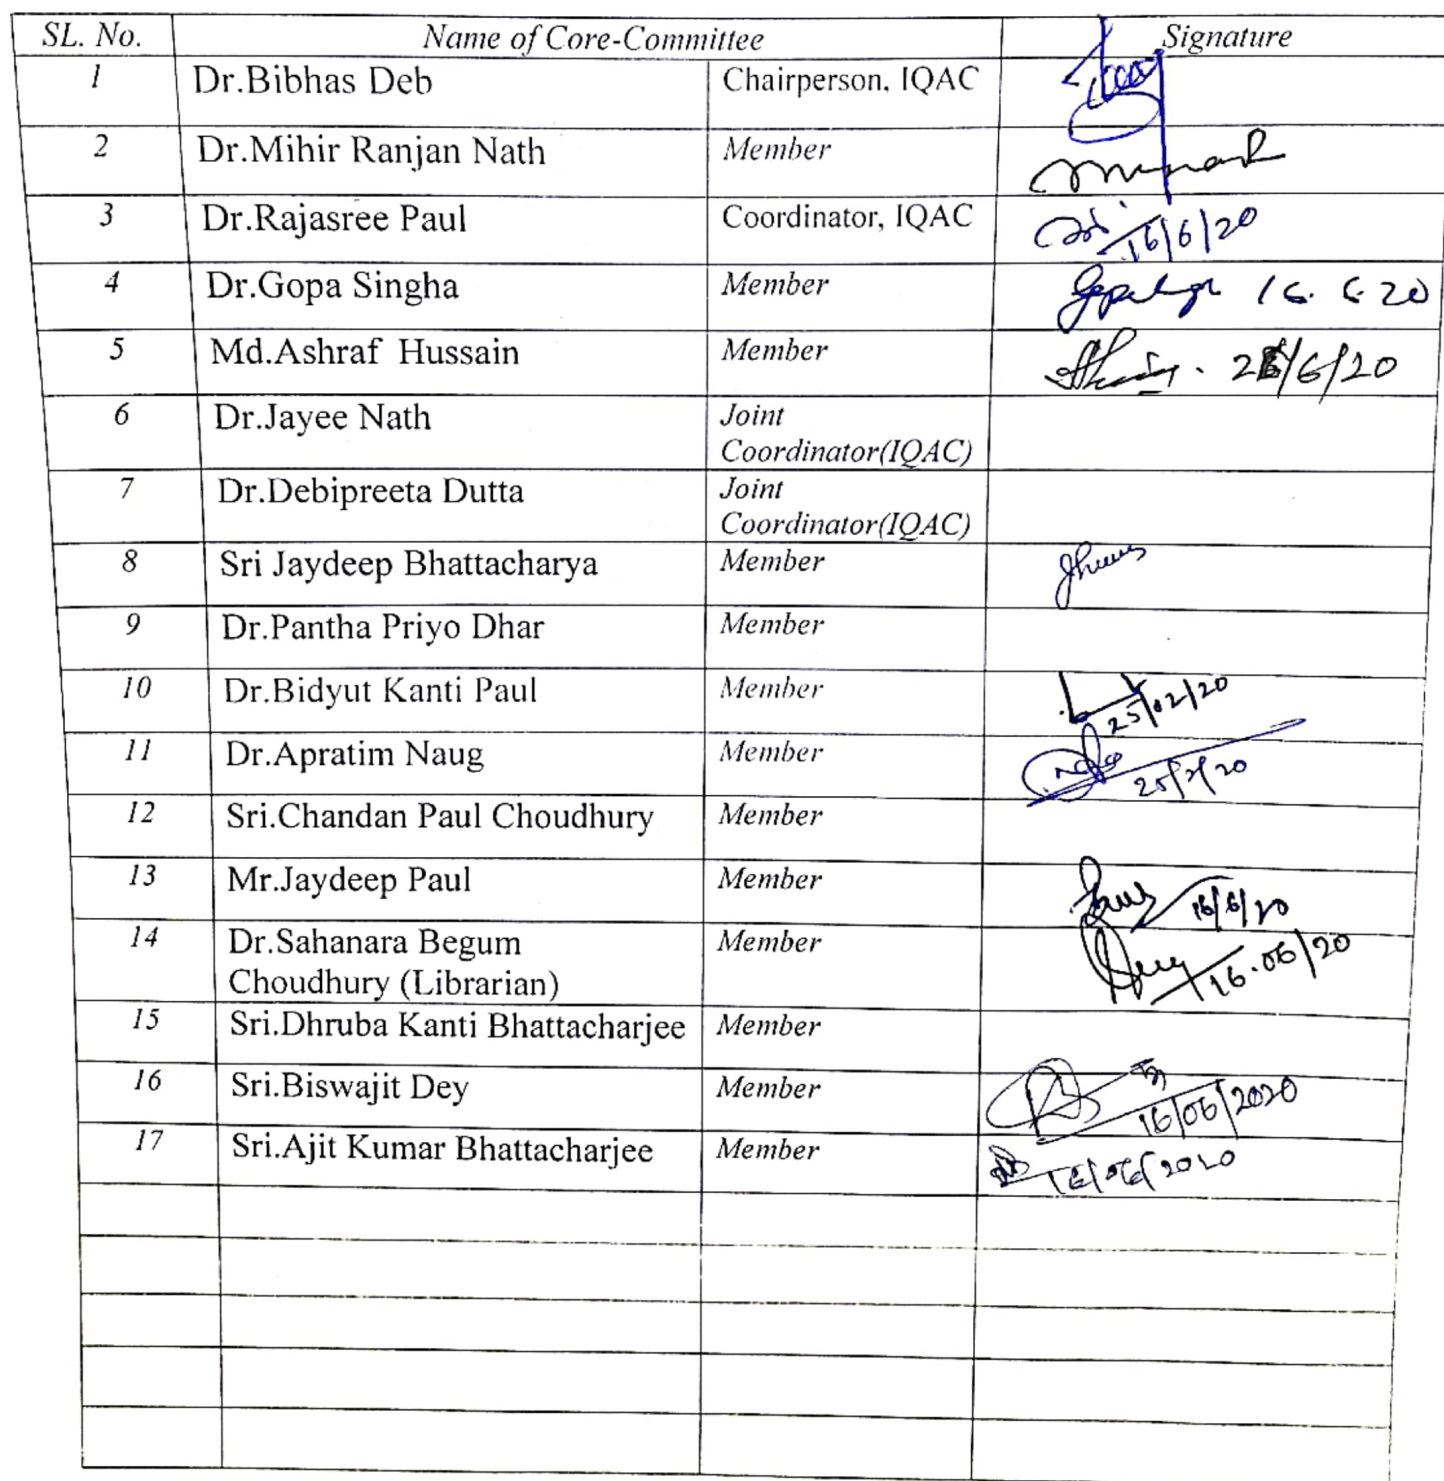 SL. No. Name of Core-Committee Signature
1 Dr.Bibhas Deb Chairperson, IQAC
2 Dr.Mihir Ranjan Nath Member
3 Dr.Rajasree Paul Coordinator, IQAC 16/6/20
4 Dr.Gopa Singha Member 16.6.20
5 Md.Ashraf Hussain Member /6/20
6 Dr.Jayee Nath Joint
Coordinator(IQAC)
7 Dr.Debipreeta Dutta Joint
Coordinator(IQAC)
8 Sri Jaydeep Bhattacharya Member
9 Dr.Pantha Priyo Dhar Member
10 Dr.Bidyut Kanti Paul Member
25/02/20
11 Dr.Apratim Naug Member
25/2/20
12 Sri.Chandan Paul Choudhury Member
13 Mr.Jaydeep Paul Member
16/6/20
14 Dr.Sahanara Begum Member
Choudhury (Librarian) 16.06/20
15 Sri.Dhruba Kanti Bhattacharjee Member
16 Sri.Biswajit Dey Member
16/06/2020
17 Sri.Ajit Kumar Bhattacharjee Member
16/06/2020